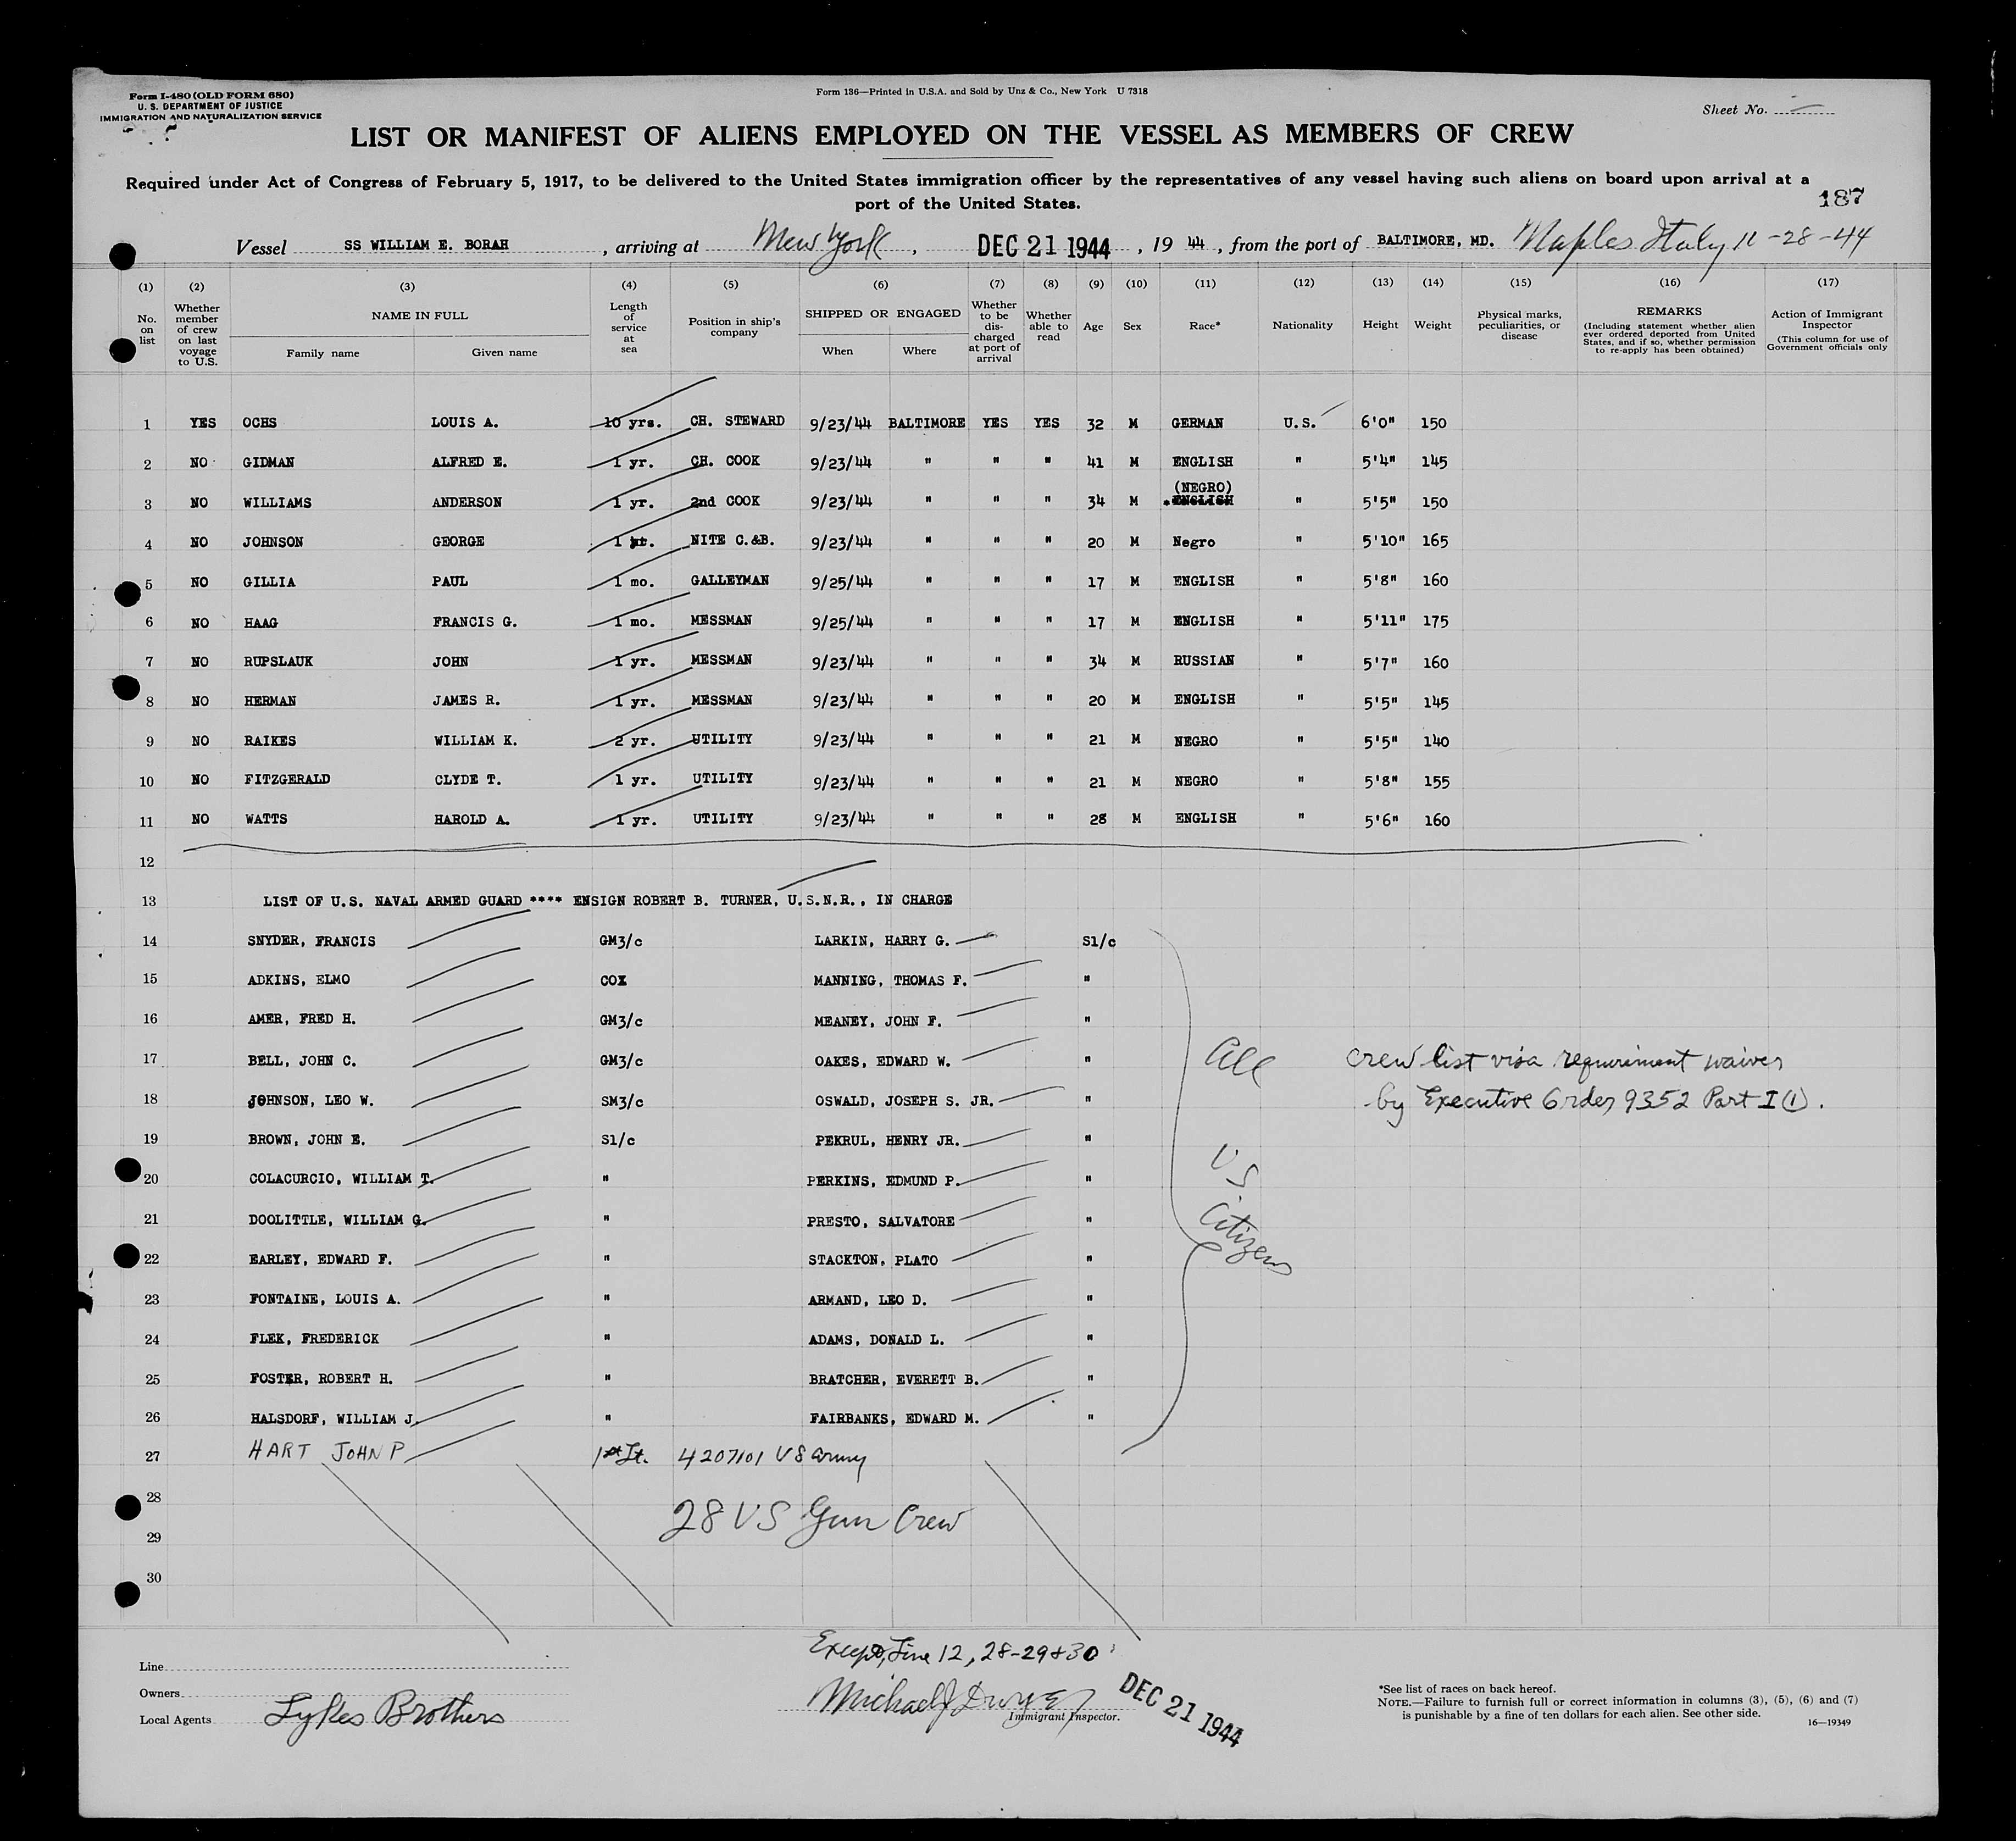 Form I-480 (OLD FORM 680)
U. S. DEPARTMENT OF JUSTICE
IMMIGRATION AND NATURALIZATION SERVICE
Form 136—Printed in U.S.A. and Sold by Unz & Co., New York U 7318
Sheet No.
LIST OR MANIFEST OF ALIENS EMPLOYED ON THE VESSEL AS MEMBERS OF CREW
Required under Act of Congress of February 5, 1917, to be delivered to the United States immigration officer by the representatives of any vessel having such aliens on board upon arrival at a
port of the United States.
187
Vessel SS WILLIAM E. BORAH, arriving at New York, DEC 21 1944, 19 44, from the port of BALTIMORE, MD. Naples Italy 11-28-44
(1) (2) (3) (4) (5) (6) (7) (8) (9) (10) (11) (12) (13) (14) (15) (16) (17)
No. on list
Whether member of crew on last voyage to U.S.
NAME IN FULL
Family name Given name
Length of service at sea
Position in ship's company
SHIPPED OR ENGAGED
When Where
Whether to be discharged at port of arrival
Whether able to read
Age
Sex
Race*
Nationality
Height
Weight
Physical marks, peculiarities, or disease
REMARKS
(Including statement whether alien ever ordered deported from United States, and if so, whether permission to re-apply has been obtained)
Action of Immigrant Inspector
(This column for use of Government officials only
1 YES OCHS LOUIS A. 10 yrs. CH. STEWARD 9/23/44 BALTIMORE YES YES 32 M GERMAN U.S. 6'0" 150
2 NO GIDMAN ALFRED E. 1 yr. CH. COOK 9/23/44 " " " 41 M ENGLISH " 5'4" 145
(NEGRO)
3 NO WILLIAMS ANDERSON 1 yr. 2nd COOK 9/23/44 " " " 34 M ENGLISH " 5'5" 150
4 NO JOHNSON GEORGE 1 NITE C.&B. 9/23/44 " " " 20 M Negro " 5'10" 165
5 NO GILLIA PAUL 1 mo. GALLEYMAN 9/25/44 " " " 17 M ENGLISH " 5'8" 160
6 NO HAAG FRANCIS G. 1 mo. MESSMAN 9/25/44 " " " 17 M ENGLISH " 5'11" 175
7 NO RUPSLAUK JOHN 1 yr. MESSMAN 9/23/44 " " " 34 M RUSSIAN " 5'7" 160
8 NO HERMAN JAMES R. 1 yr. MESSMAN 9/23/44 " " " 20 M ENGLISH " 5'5" 145
9 NO RAIKES WILLIAM K. 2 yr. UTILITY 9/23/44 " " " 21 M NEGRO " 5'5" 140
10 NO FITZGERALD CLYDE T. 1 yr. UTILITY 9/23/44 " " " 21 M NEGRO " 5'8" 155
11 NO WATTS HAROLD A. 1 yr. UTILITY 9/23/44 " " " 28 M ENGLISH " 5'6" 160
12
13 LIST OF U.S. NAVAL ARMED GUARD **** ENSIGN ROBERT B. TURNER, U.S.N.R., IN CHARGE
14 SNYDER, FRANCIS GM3/c LARKIN, HARRY G. S1/c
15 ADKINS, ELMO COX MANNING, THOMAS F. "
16 AMER, FRED H. GM3/c MEANEY, JOHN F. "
17 BELL, JOHN C. GM3/c OAKES, EDWARD W. " All crew list visa requirement waives
18 JOHNSON, LEO W. SM3/c OSWALD, JOSEPH S. JR. " by Executive Order 9352 Part I (1).
19 BROWN, JOHN E. S1/c PEKRUL, HENRY JR. "
20 COLACURCIO, WILLIAM T. " PERKINS, EDMUND P. " US
21 DOOLITTLE, WILLIAM G. " PRESTO, SALVATORE " Citizens
22 EARLEY, EDWARD F. " STACKTON, PLATO "
23 FONTAINE, LOUIS A. " ARMAND, LEO D. "
24 FLEK, FREDERICK " ADAMS, DONALD L. "
25 FOSTER, ROBERT H. " BRATCHER, EVERETT B. "
26 HALSDORF, WILLIAM J. " FAIRBANKS, EDWARD M. "
27 HART JOHN P 1st Lt. 4207101 US Army
28 28 US Gun Crew
29
30
Except Line 12, 28-29 & 30
Line
Owners
Local Agents Lykes Brothers
Michael J Dwyer
Immigrant Inspector.
DEC 21 1944
*See list of races on back hereof.
NOTE.—Failure to furnish full or correct information in columns (3), (5), (6) and (7)
is punishable by a fine of ten dollars for each alien. See other side.
16—19349